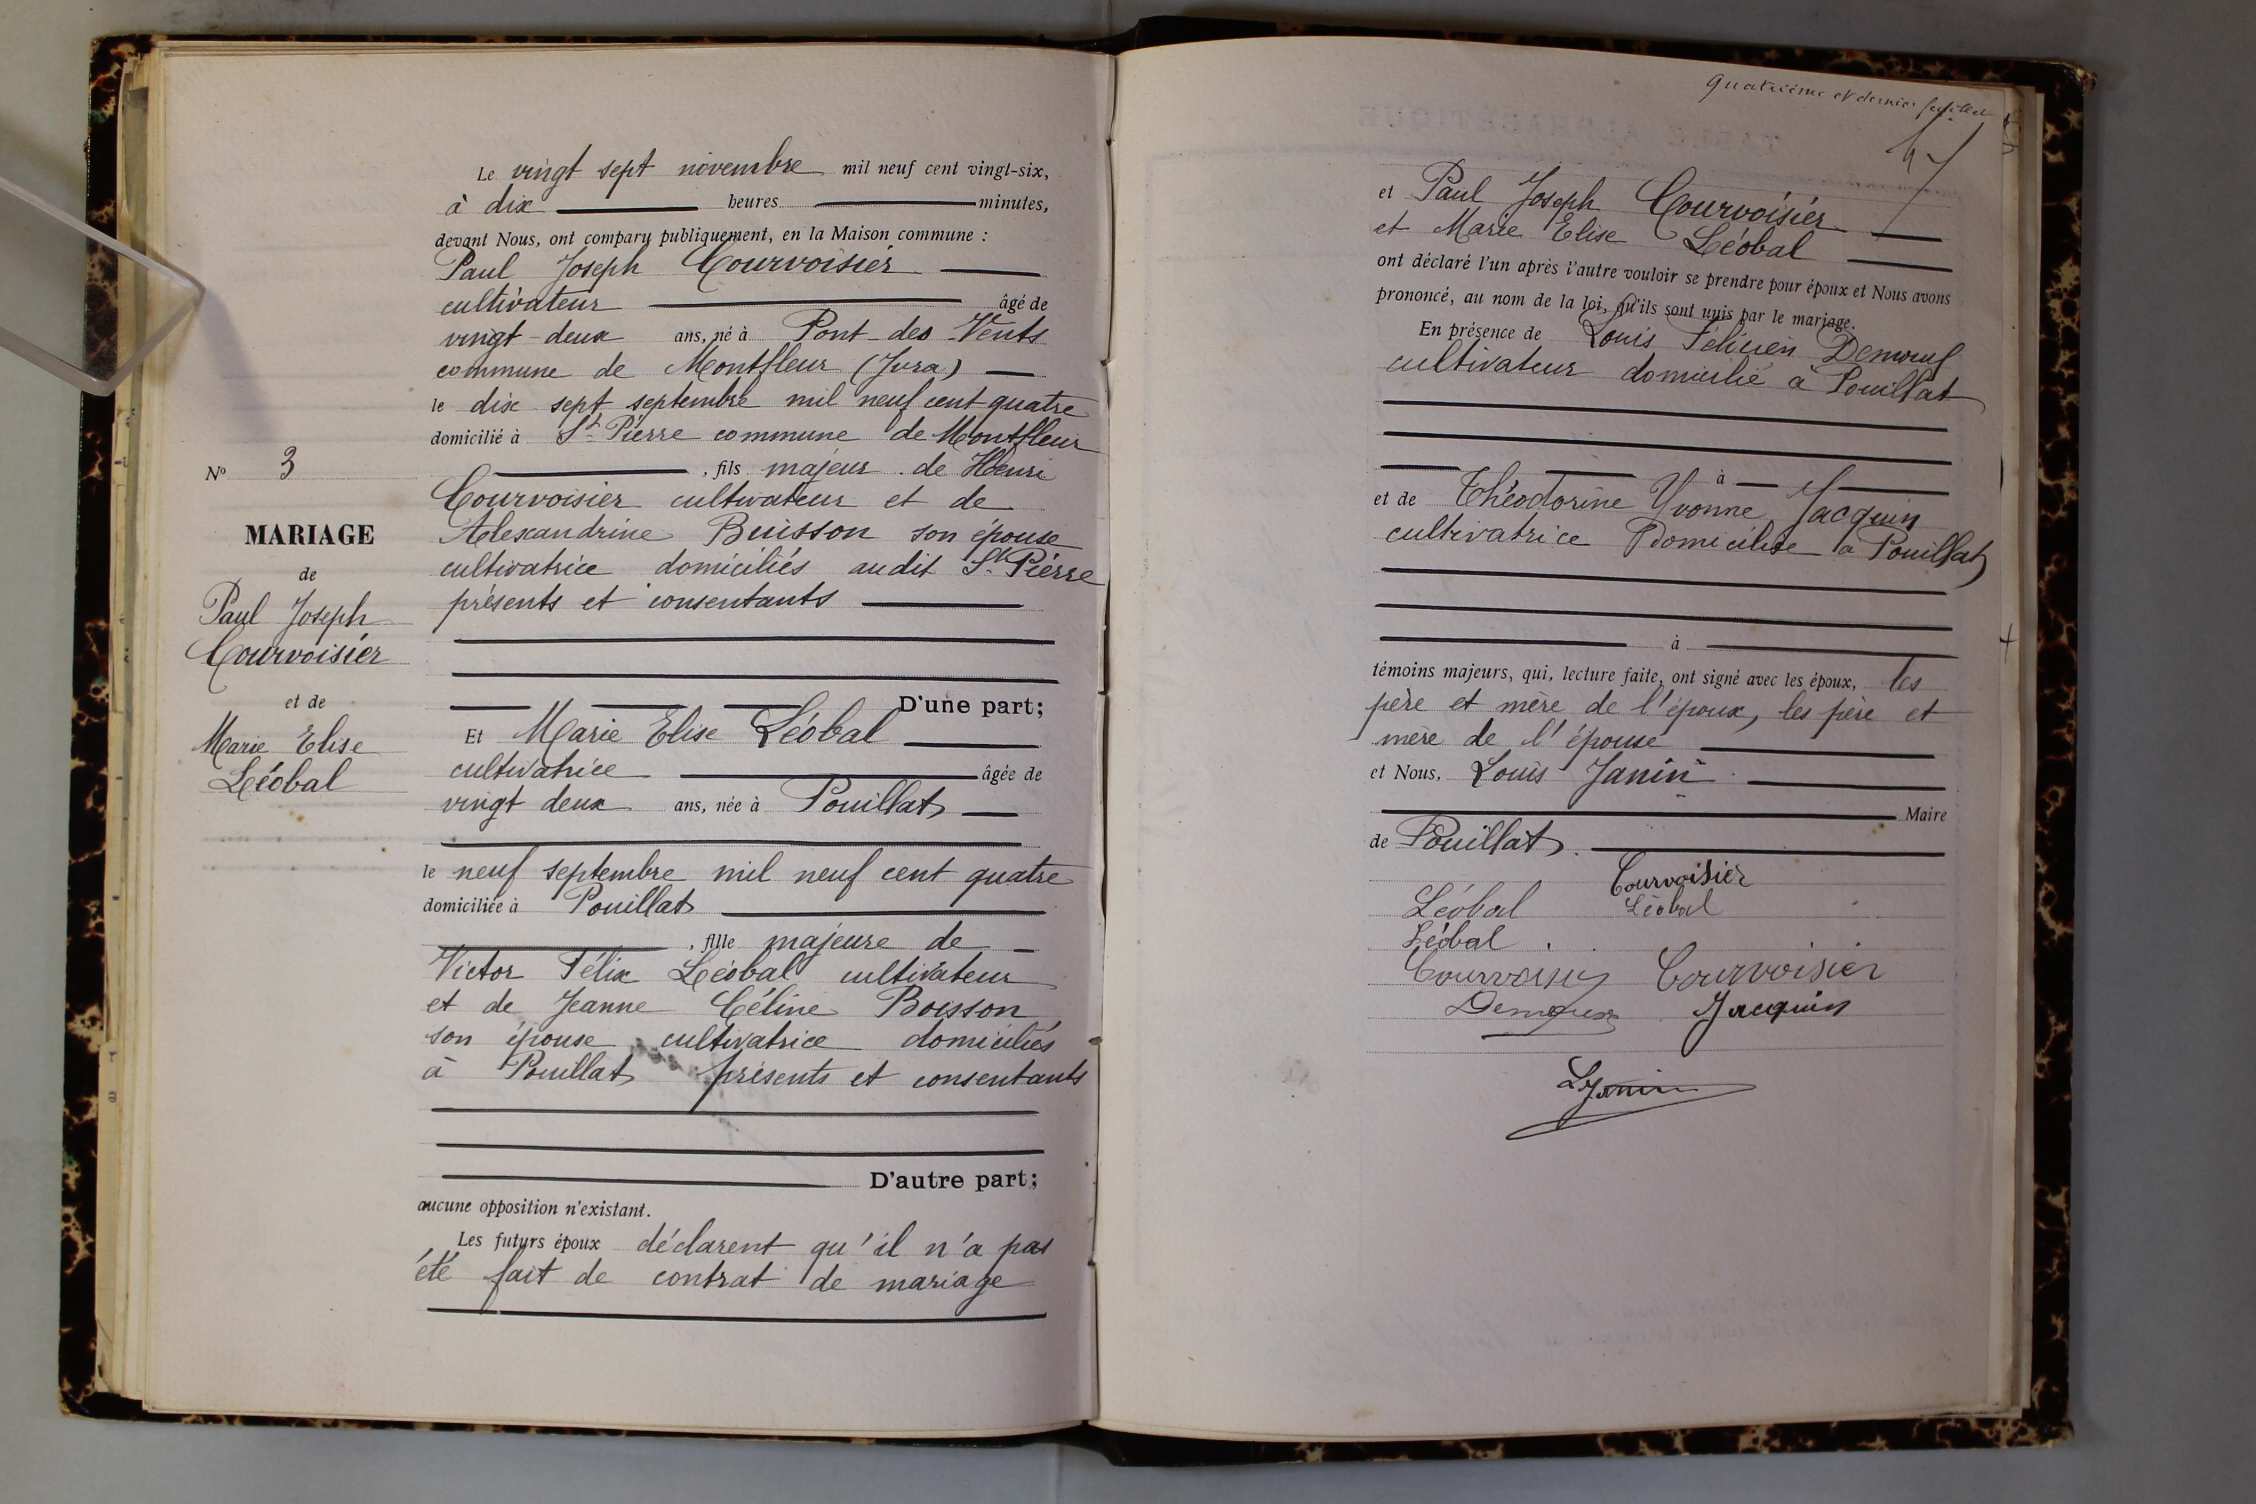 Le vingt sept novembre mil neuf cent vingt-six,
à dix heures minutes,
devant Nous, ont comparu publiquement, en la Maison commune :
Paul Joseph Courvoisier
cultivateur âgé de
vingt-deux ans, né à Pont-des-Vents
commune de Montfleur (Jura)
le dix sept septembre mil neuf cent quatre
domicilié à St Pierre commune de Montfleur
, fils majeur de Henri
Courvoisier cultivateur et de
Alexandrine Buisson son épouse
cultivatrice domiciliés audit St Pierre
présents et consentants
D'une part;
Et Marie Elise Léobal
cultivatrice âgée de
vingt deux ans, née à Pouillat
le neuf septembre mil neuf cent quatre
domiciliée à Pouillat
, fille majeure de
Victor Félix Léobal cultivateur
et de Jeanne Céline Boisson
son épouse cultivatrice domiciliés
à Pouillat présents et consentants
D'autre part;
aucune opposition n'existant.
Les futurs époux déclarent qu'il n'a pas
été fait de contrat de mariage
No 3
MARIAGE
de
Paul Joseph
Courvoisier
et de
Marie Elise
Léobal
quatrième et dernier feuillet
et Paul Joseph Courvoisier
et Marie Elise Léobal
ont déclaré l'un après l'autre vouloir se prendre pour époux et Nous avons
prononcé, au nom de la loi, qu'ils sont unis par le mariage.
En présence de Louis Félicien
cultivateur domicilié à Pouillat
à
et de Théodorine Yvonne Jacquin
cultivatrice Domiciliée à Pouillat
à
témoins majeurs, qui, lecture faite, ont signé avec les époux, les
père et mère de l'époux, les père et
mère de l'épouse
et Nous, Louis Janin
Maire
de Pouillat
Courvoisier
Léobal Léobal
Léobal
Courvoisier Courvoisier
Jacquin
LJanin